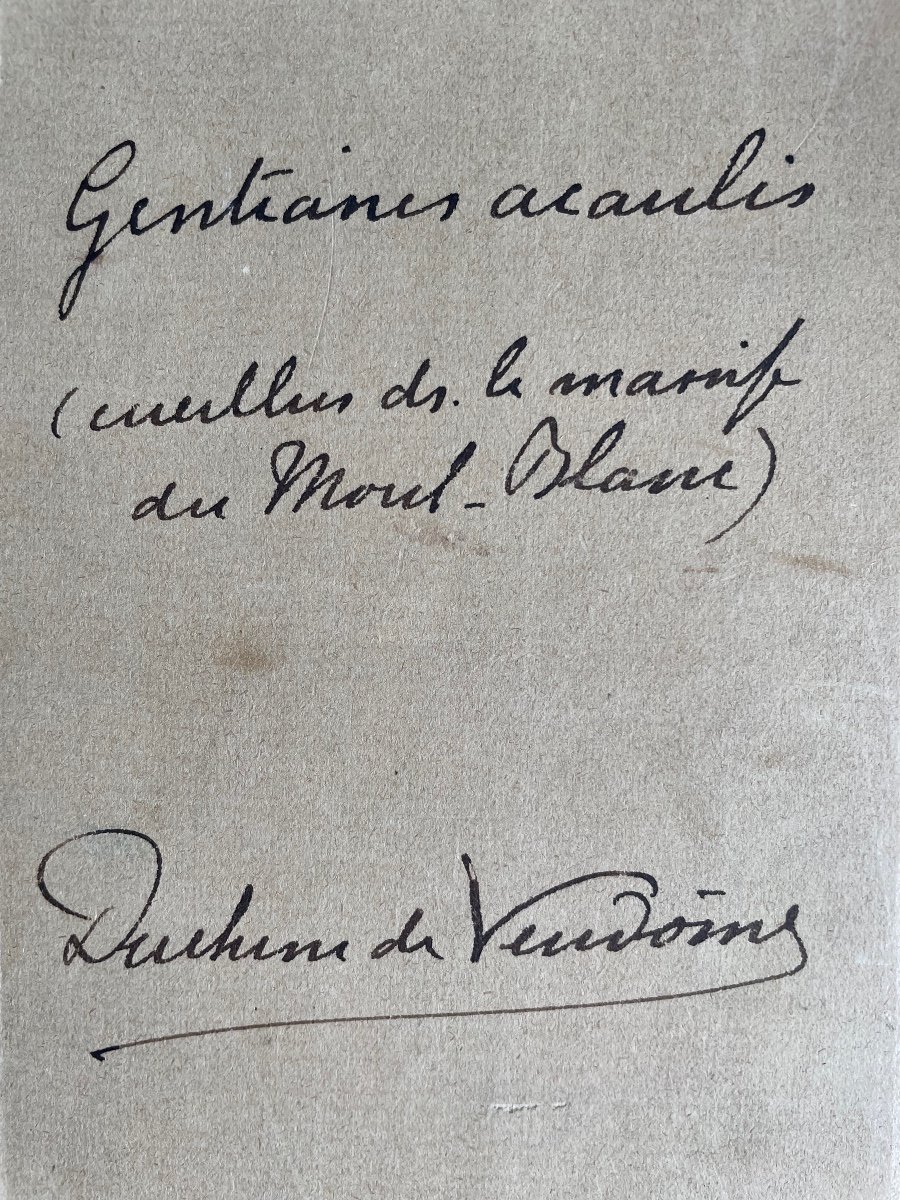 Gentianes acaulis
(cueillies ds. le massif
du Mont-Blanc)
Duchesse de Vendôme